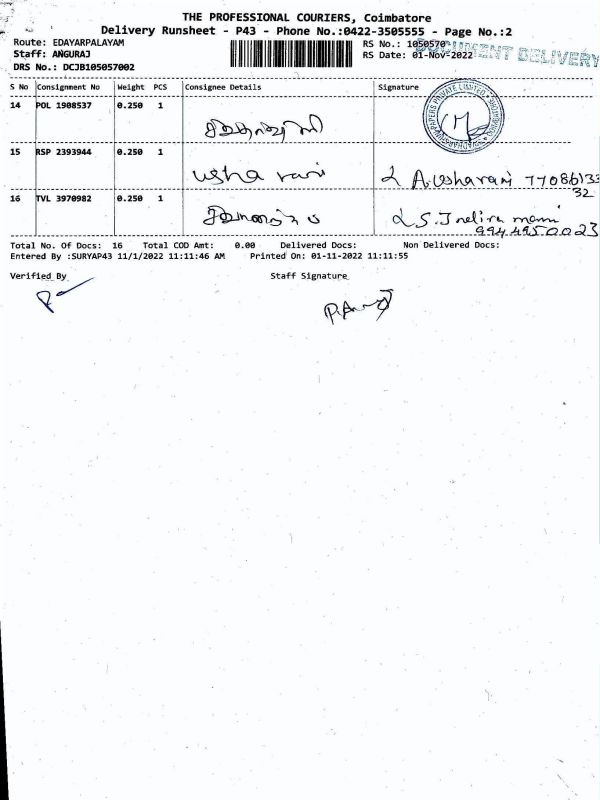 THE PROFESSIONAL COURIERS, Coimbatore
Delivery Runsheet - P43 - Phone No.:0422-3505555 - Page No.:2
Route: EDAYARPALAYAM
Staff: ANGURAJ
DRS No.: DCJB105057002
RS No.: 1050570
RS Date: 01-Nov-2022
DOCUMENT DELIVERY
S No Consignment No Weight PCS Consignee Details Signature
14 POL 1908537 0.250 1
15 RSP 2393944 0.250 1 usha rani A. Usharani 77086133
32
16 TVL 3970982 0.250 1 S. Indira mani
994 495 0023
Total No. Of Docs: 16 Total COD Amt: 0.00 Delivered Docs: Non Delivered Docs:
Entered By :SURYAP43 11/1/2022 11:11:46 AM Printed On: 01-11-2022 11:11:55
Verified By Staff Signature